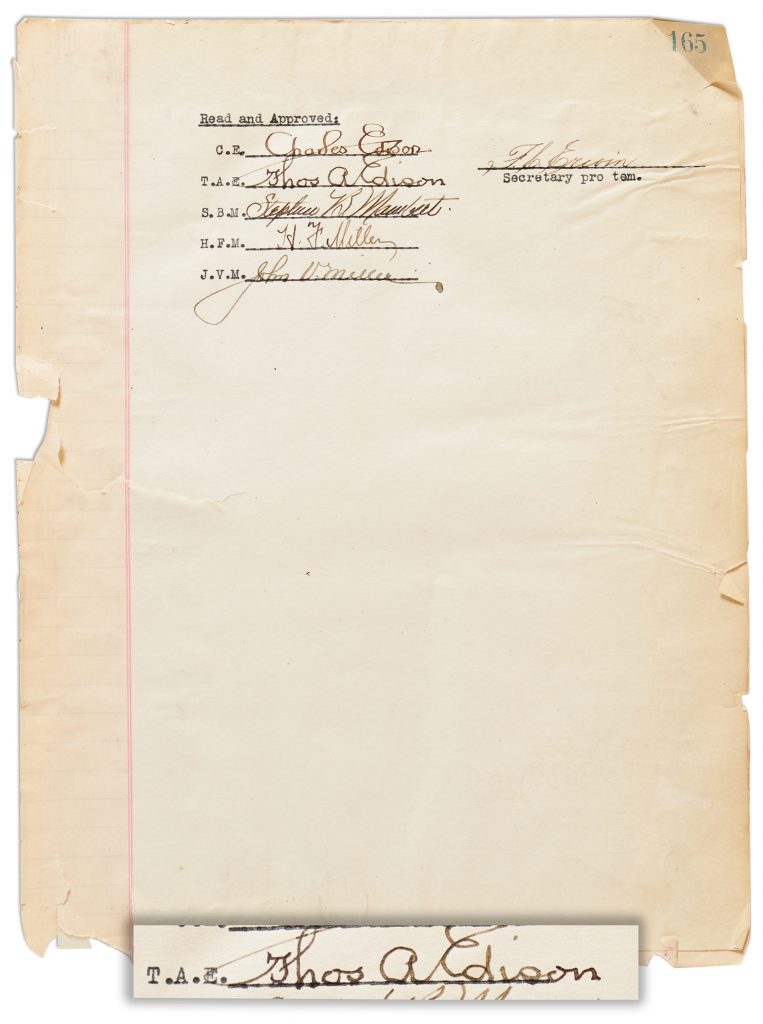 165
Read and Approved:
C.E. Charles Edison
T.A.E. Thos A Edison
Secretary pro tem.
S.B.M. Stephen B Mambert.
H.F.M. H. F. Miller
J.V.M. John V. Miller
T.A.E. Thos A Edison